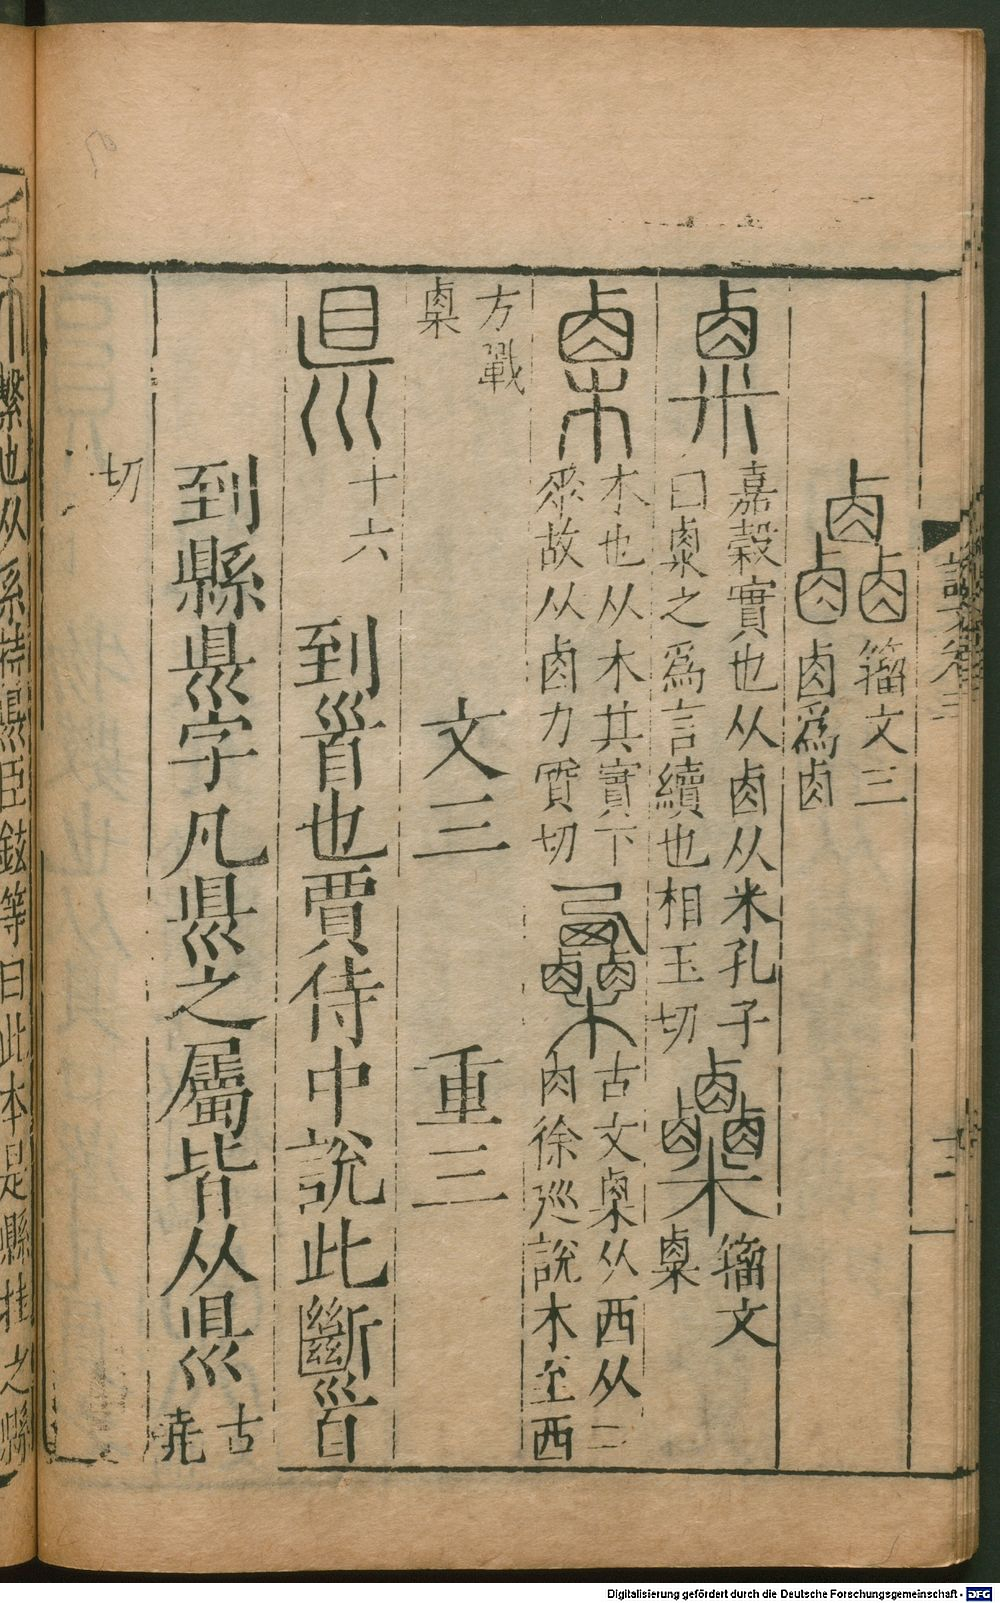 籒文三
卤為卤
嘉穀實也从卤从米孔子
曰㮚之為言續也相玉切
籒文
㮚
木也从木其實下
𠂹故从卤力質切
古文㮚从西从二
卤徐巡說木至西
方戰
㮚
文三
重三
十六
到𩠐也賈侍中說此斷𩠐
到縣𥄉字凡𥄉之屬皆从𥄉
古
堯
切
繫也从系持𥄉臣鉉等曰此本是縣挂之縣
Digitalisierung gefördert durch die Deutsche Forschungsgemeinschaft - DFG